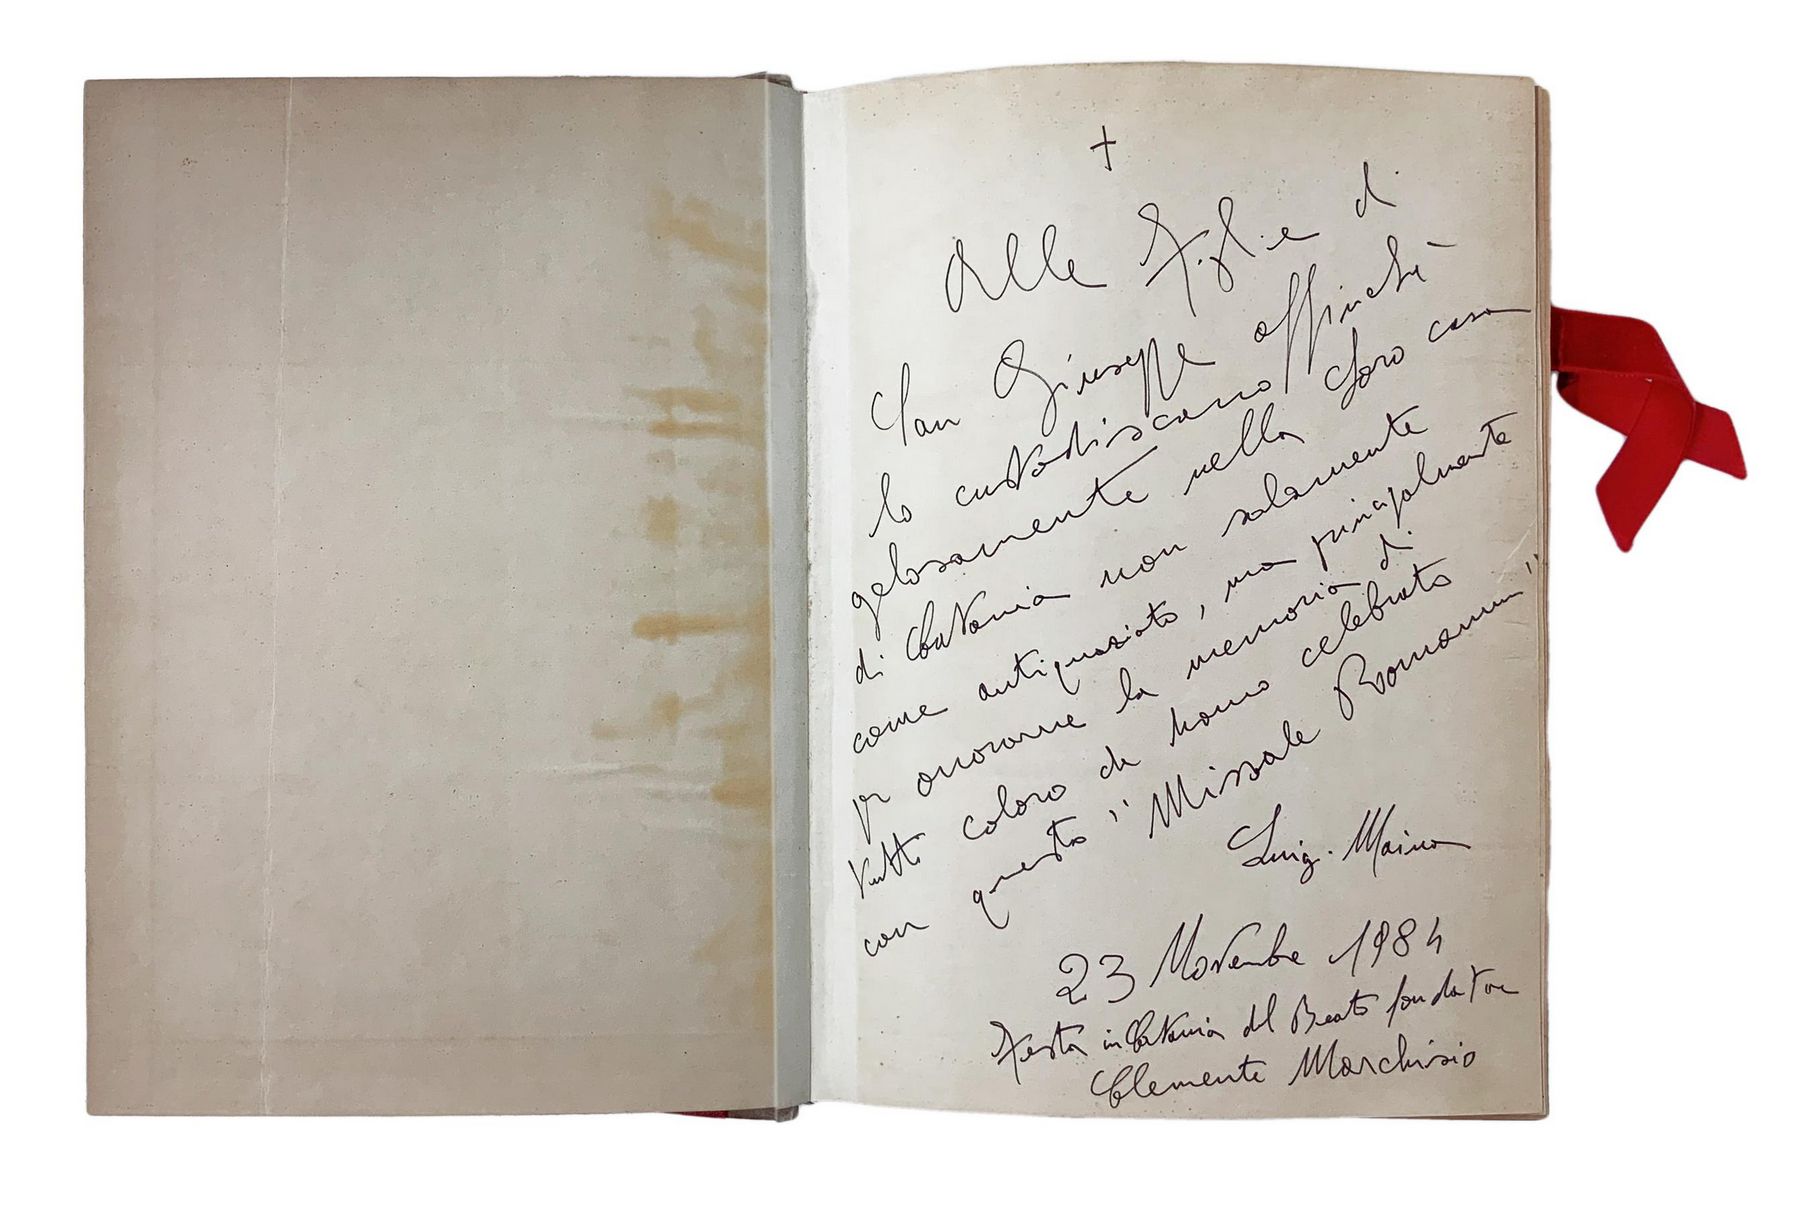 +
Alle Figlie di
San Giuseppe affinchè
lo custodiscano
gelosamente nella loro casa
di Catania non solamente
come antiquariato, ma principalmente
per onorarne la memoria di
tutti coloro che hanno celebrato
con questo "Missale Romanum"
Luigi Maina
23 Novembre 1984
Festa in Catania del Beato fondatore
Clemente Marchisio